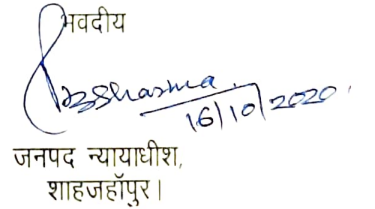 भवदीय
BSharma.
16/10/2020.
जनपद न्यायाधीश,
शाहजहॉपुर।